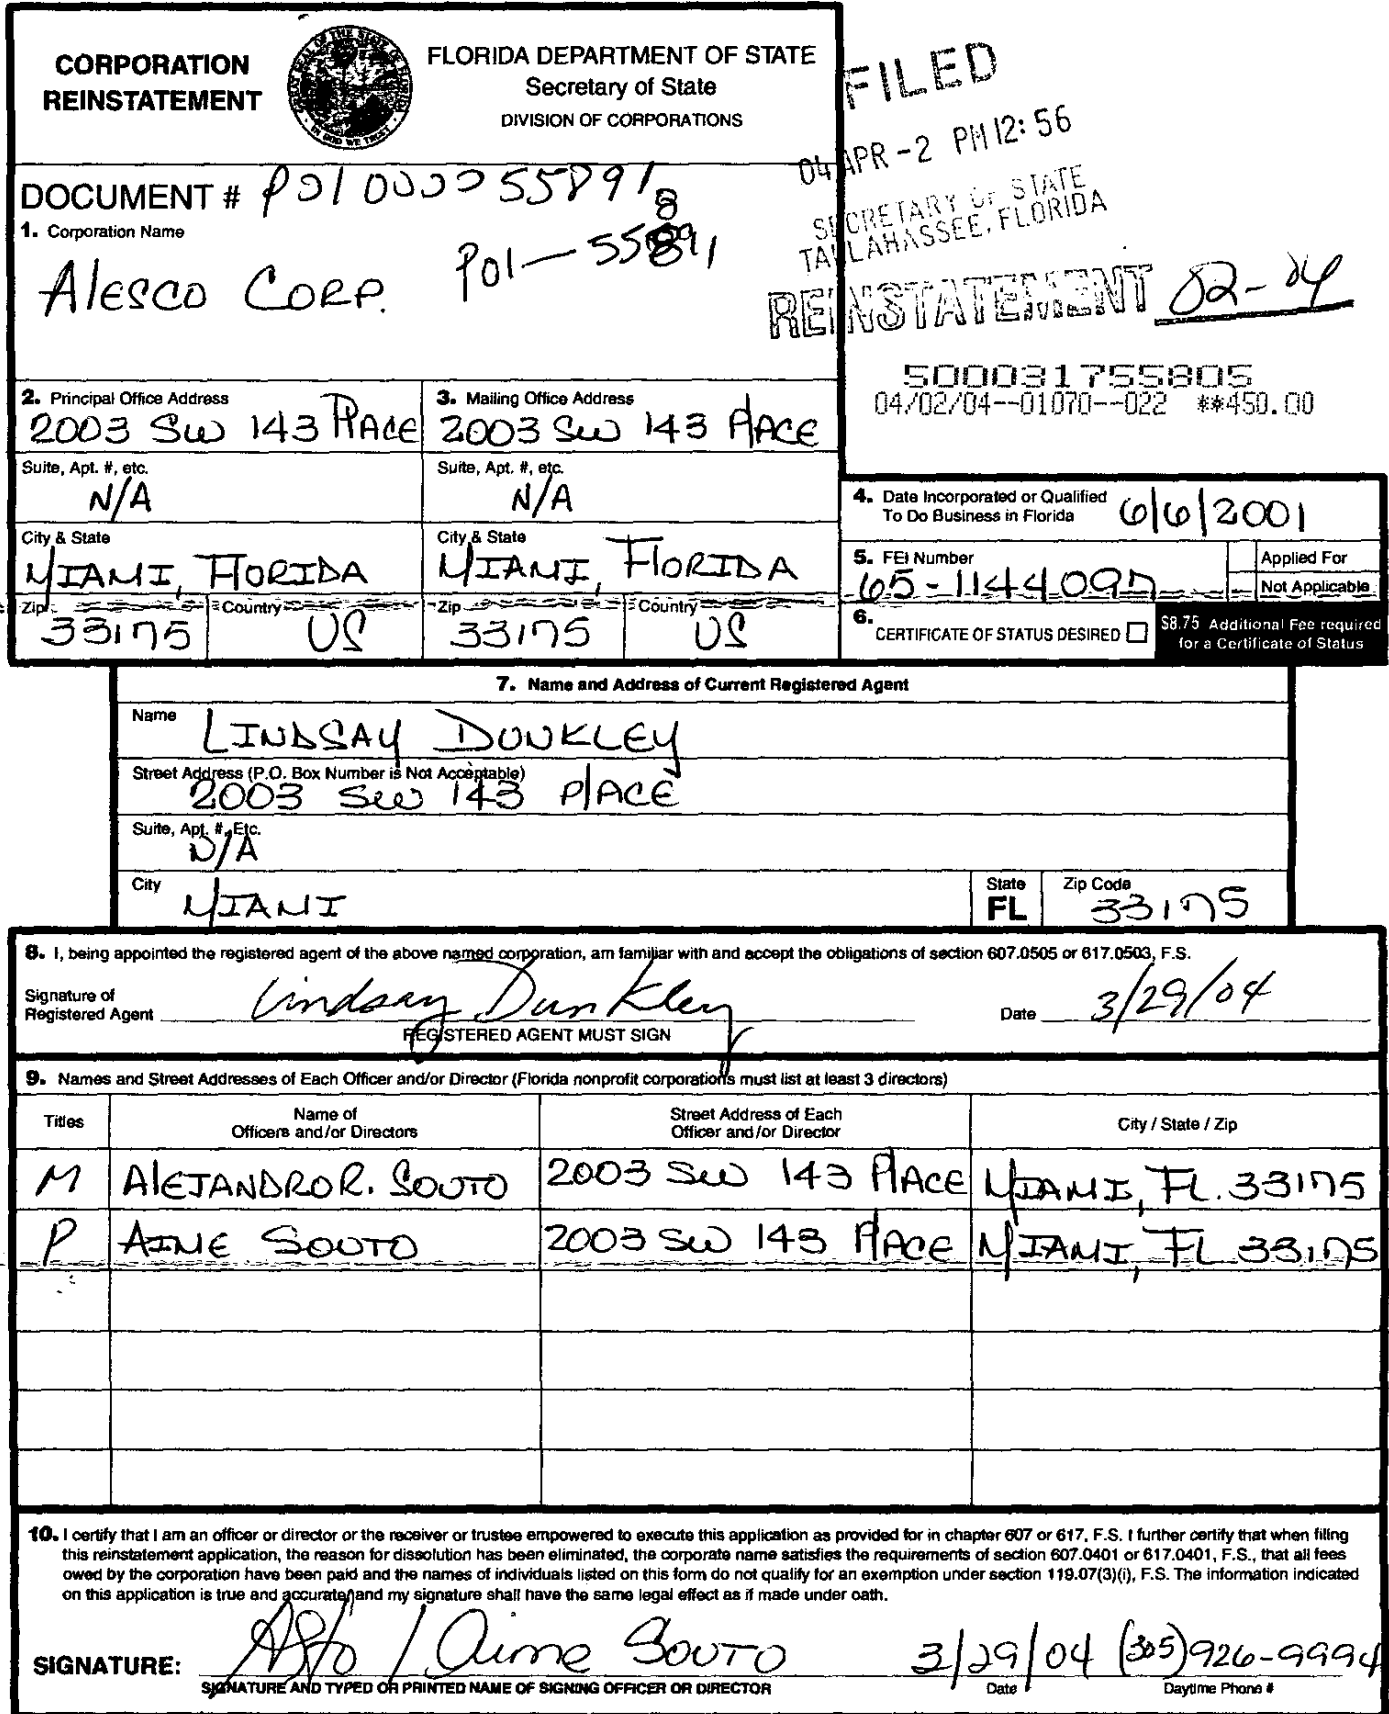 CORPORATION
REINSTATEMENT
FLORIDA DEPARTMENT OF STATE
Secretary of State
DIVISION OF CORPORATIONS
FILED
04 APR -2 PM 12: 56
SECRETARY OF STATE
TALLAHASSEE, FLORIDA
REINSTATEMENT 02-04
500031755805
04/02/04--01070--022 **450.00
DOCUMENT # P01000055891
8
1. Corporation Name
P01-55891
Alesco Corp.
2. Principal Office Address
2003 SW 143 PlACE
3. Mailing Office Address
2003 SW 143 PlACE
Suite, Apt. #, etc.
N/A
Suite, Apt. #, etc.
N/A
4. Date Incorporated or Qualified
To Do Business in Florida 6/6/2001
City & State
MIAMI, FlORIDA
City & State
MIAMI, FlORIDA
5. FEI Number
65-1144097
Applied For
Not Applicable
Zip
33175
Country
US
Zip
33175
Country
US
6. CERTIFICATE OF STATUS DESIRED
$8.75 Additional Fee required
for a Certificate of Status
7. Name and Address of Current Registered Agent
Name LINDSAY DUNKLEY
Street Address (P.O. Box Number is Not Acceptable)
2003 SW 143 PlACE
Suite, Apt. #, Etc.
N/A
City MIAMI
State
FL
Zip Code
33175
8. I, being appointed the registered agent of the above named corporation, am familiar with and accept the obligations of section 607.0505 or 617.0503, F.S.
Signature of
Registered Agent Lindsay Dunkley
Date 3/29/04
REGISTERED AGENT MUST SIGN
9. Names and Street Addresses of Each Officer and/or Director (Florida nonprofit corporations must list at least 3 directors)
Titles
Name of
Officers and/or Directors
Street Address of Each
Officer and/or Director
City / State / Zip
M AlEJANDRO R. SOUTO 2003 SW 143 PlACE MIAMI, FL. 33175
P AIME SOUTO 2003 SW 143 PlACE MIAMI, FL 33175
10. I certify that I am an officer or director or the receiver or trustee empowered to execute this application as provided for in chapter 607 or 617, F.S. I further certify that when filing
this reinstatement application, the reason for dissolution has been eliminated, the corporate name satisfies the requirements of section 607.0401 or 617.0401, F.S., that all fees
owed by the corporation have been paid and the names of individuals listed on this form do not qualify for an exemption under section 119.07(3)(i), F.S. The information indicated
on this application is true and accurate, and my signature shall have the same legal effect as if made under oath.
SIGNATURE: / Aime Souto 3/29/04 (305)926-9994
SIGNATURE AND TYPED OR PRINTED NAME OF SIGNING OFFICER OR DIRECTOR
Date
Daytime Phone #